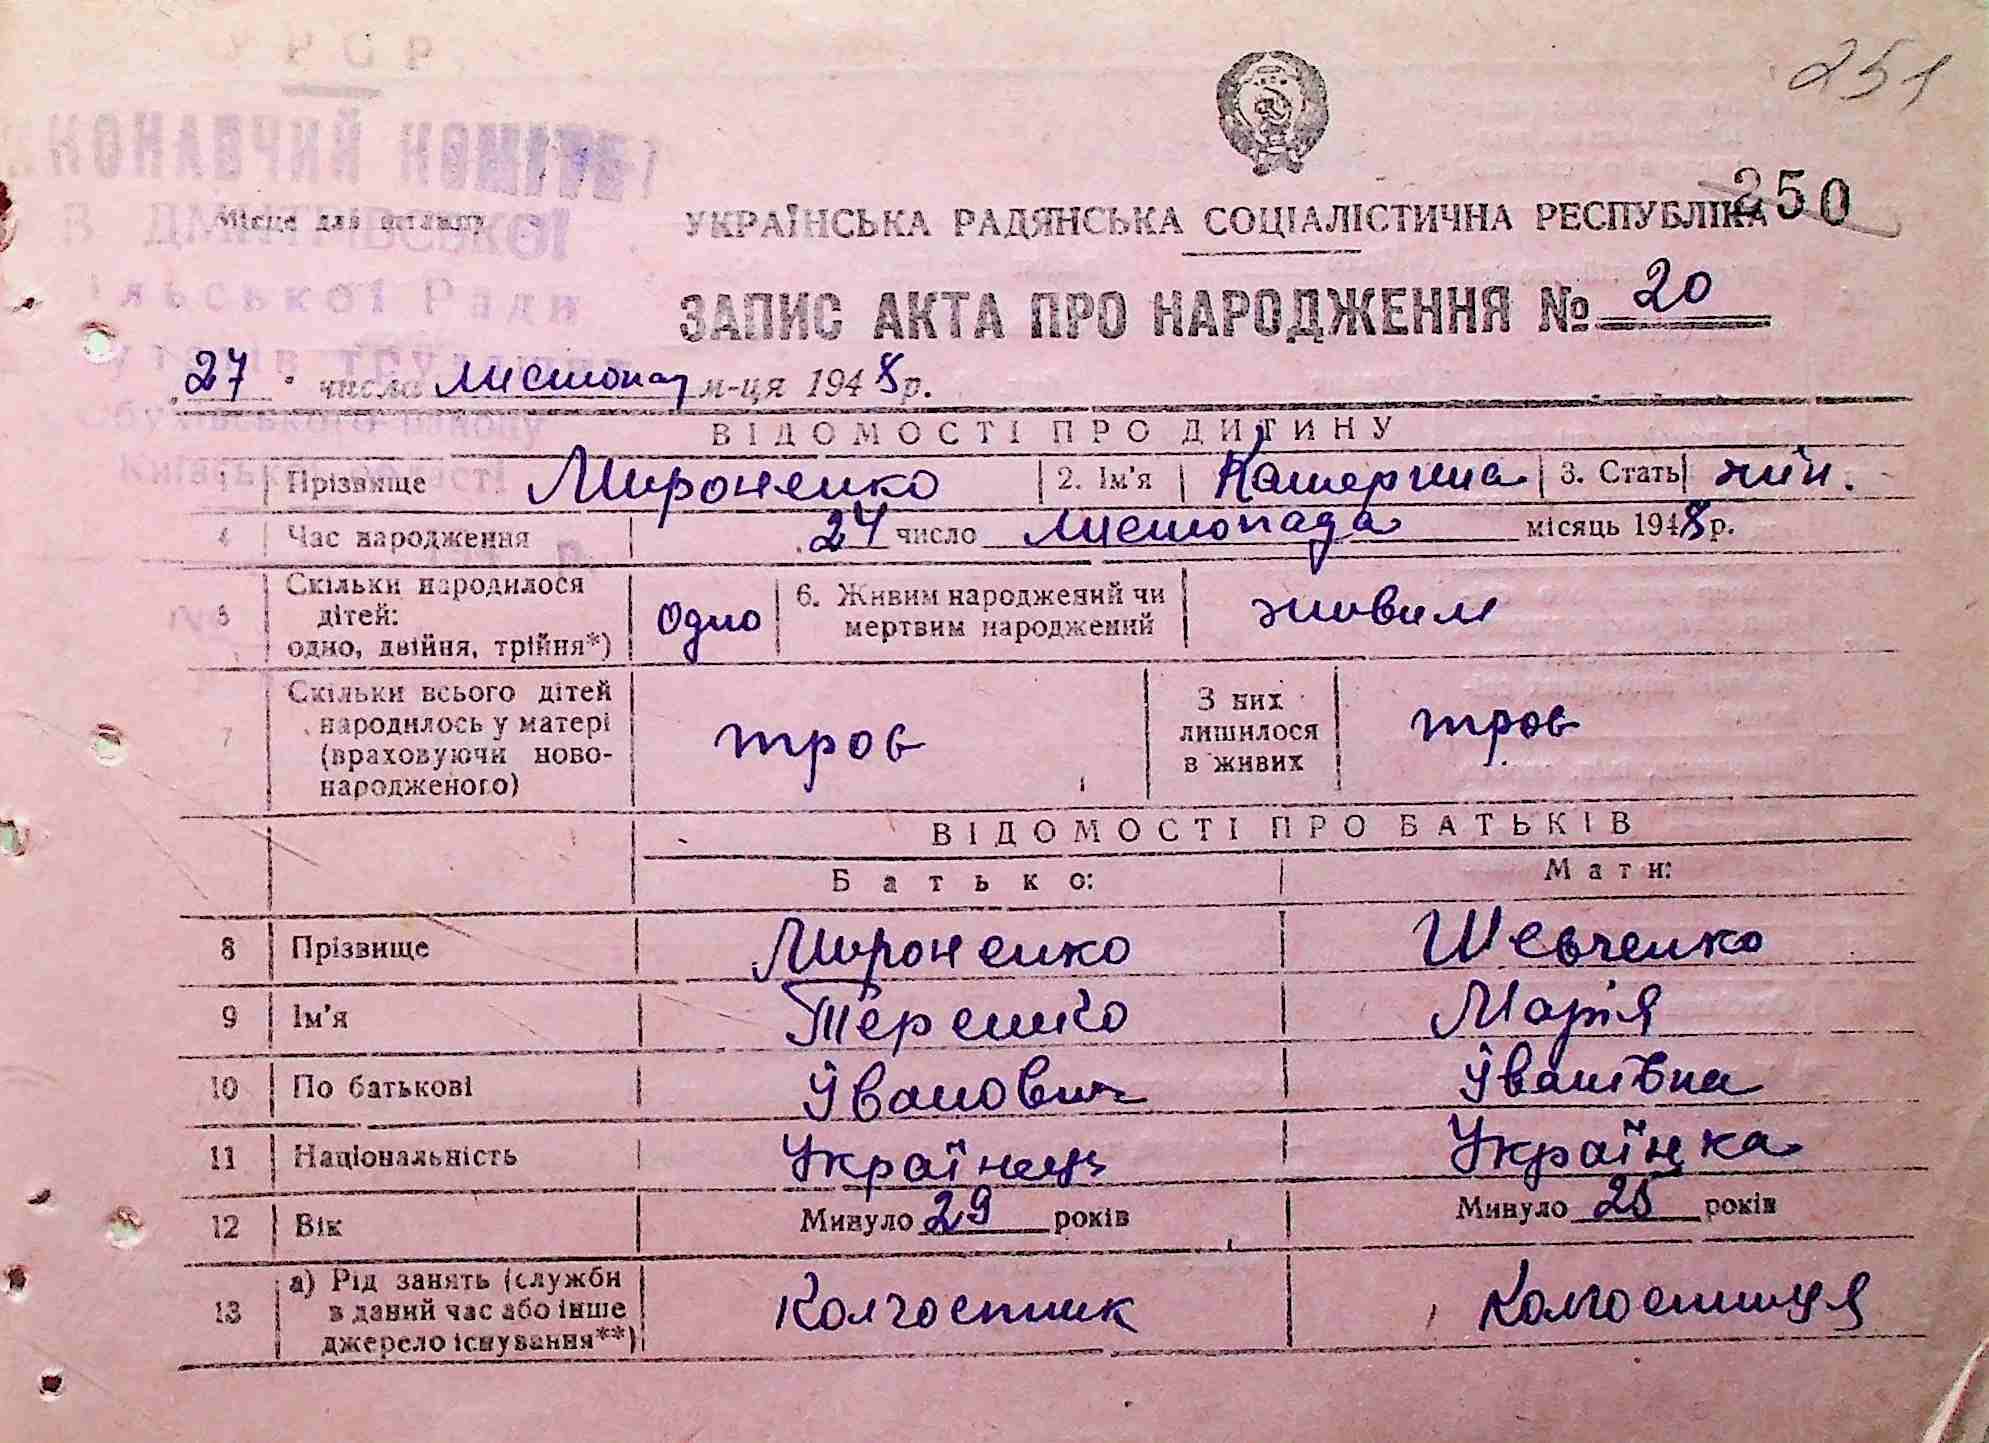 251
У Р С Р
ВИКОНАВЧИЙ КОМІТЕТ
В. ДМИТРІВСЬКОЇ
Місце для штампу
Сільської Ради
Обухівського району
Київської області
250
УКРАЇНСЬКА РАДЯНСЬКА СОЦІАЛІСТИЧНА РЕСПУБЛІКА
ЗАПИС АКТА ПРО НАРОДЖЕННЯ № 20
27 числа листопад м-ця 1948 р.
ВІДОМОСТІ ПРО ДИТИНУ
1 Прізвище Мироненко 2. Ім'я Катерина 3. Стать жін.
4 Час народження 24 число листопада місяць 1948 р.
5 Скільки народилося дітей: одно, двійня, трійня*) одно 6. Живим народжений чи мертвим народжений живим
7 Скільки всього дітей народилось у матері (враховуючи новонародженого) троє З них лишилося в живих троє
ВІДОМОСТІ ПРО БАТЬКІВ
Батько: Мати:
8 Прізвище Мироненко Шевченко
9 Ім'я Терешко Марія
10 По батькові Іванович Іванівна
11 Національність Українець Українка
12 Вік Минуло 29 років Минуло 25 років
13 а) Рід занять (служби в даний час або інше джерело існування**) Колгоспник Колгоспниця